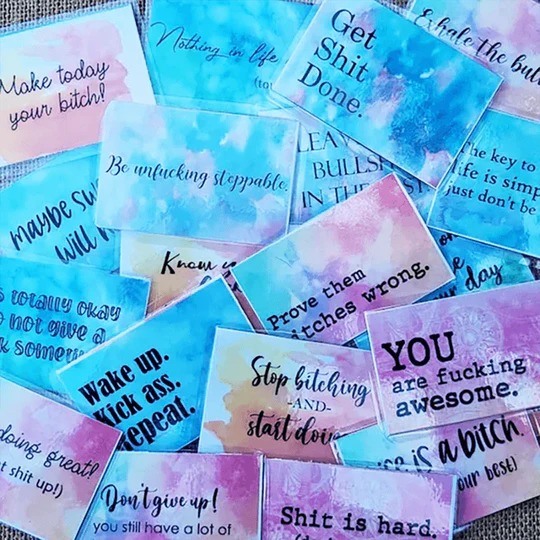 Make today
your bitch!
Nothing in life
Get
Shit
Done.
Exhale the
Be unfucking stoppable.
IN THE
The key to
life is
just don't be
maybe
will
Know
day
totally okay
not give a
Prove them
wrong.
Wake up.
Kick ass.
Repeat.
Stop bitching
-AND-
start
YOU
are fucking
awesome.
is a bitch.
your best)
doing great!
shit up!)
Don't give up!
you still have a lot of
Shit is hard.